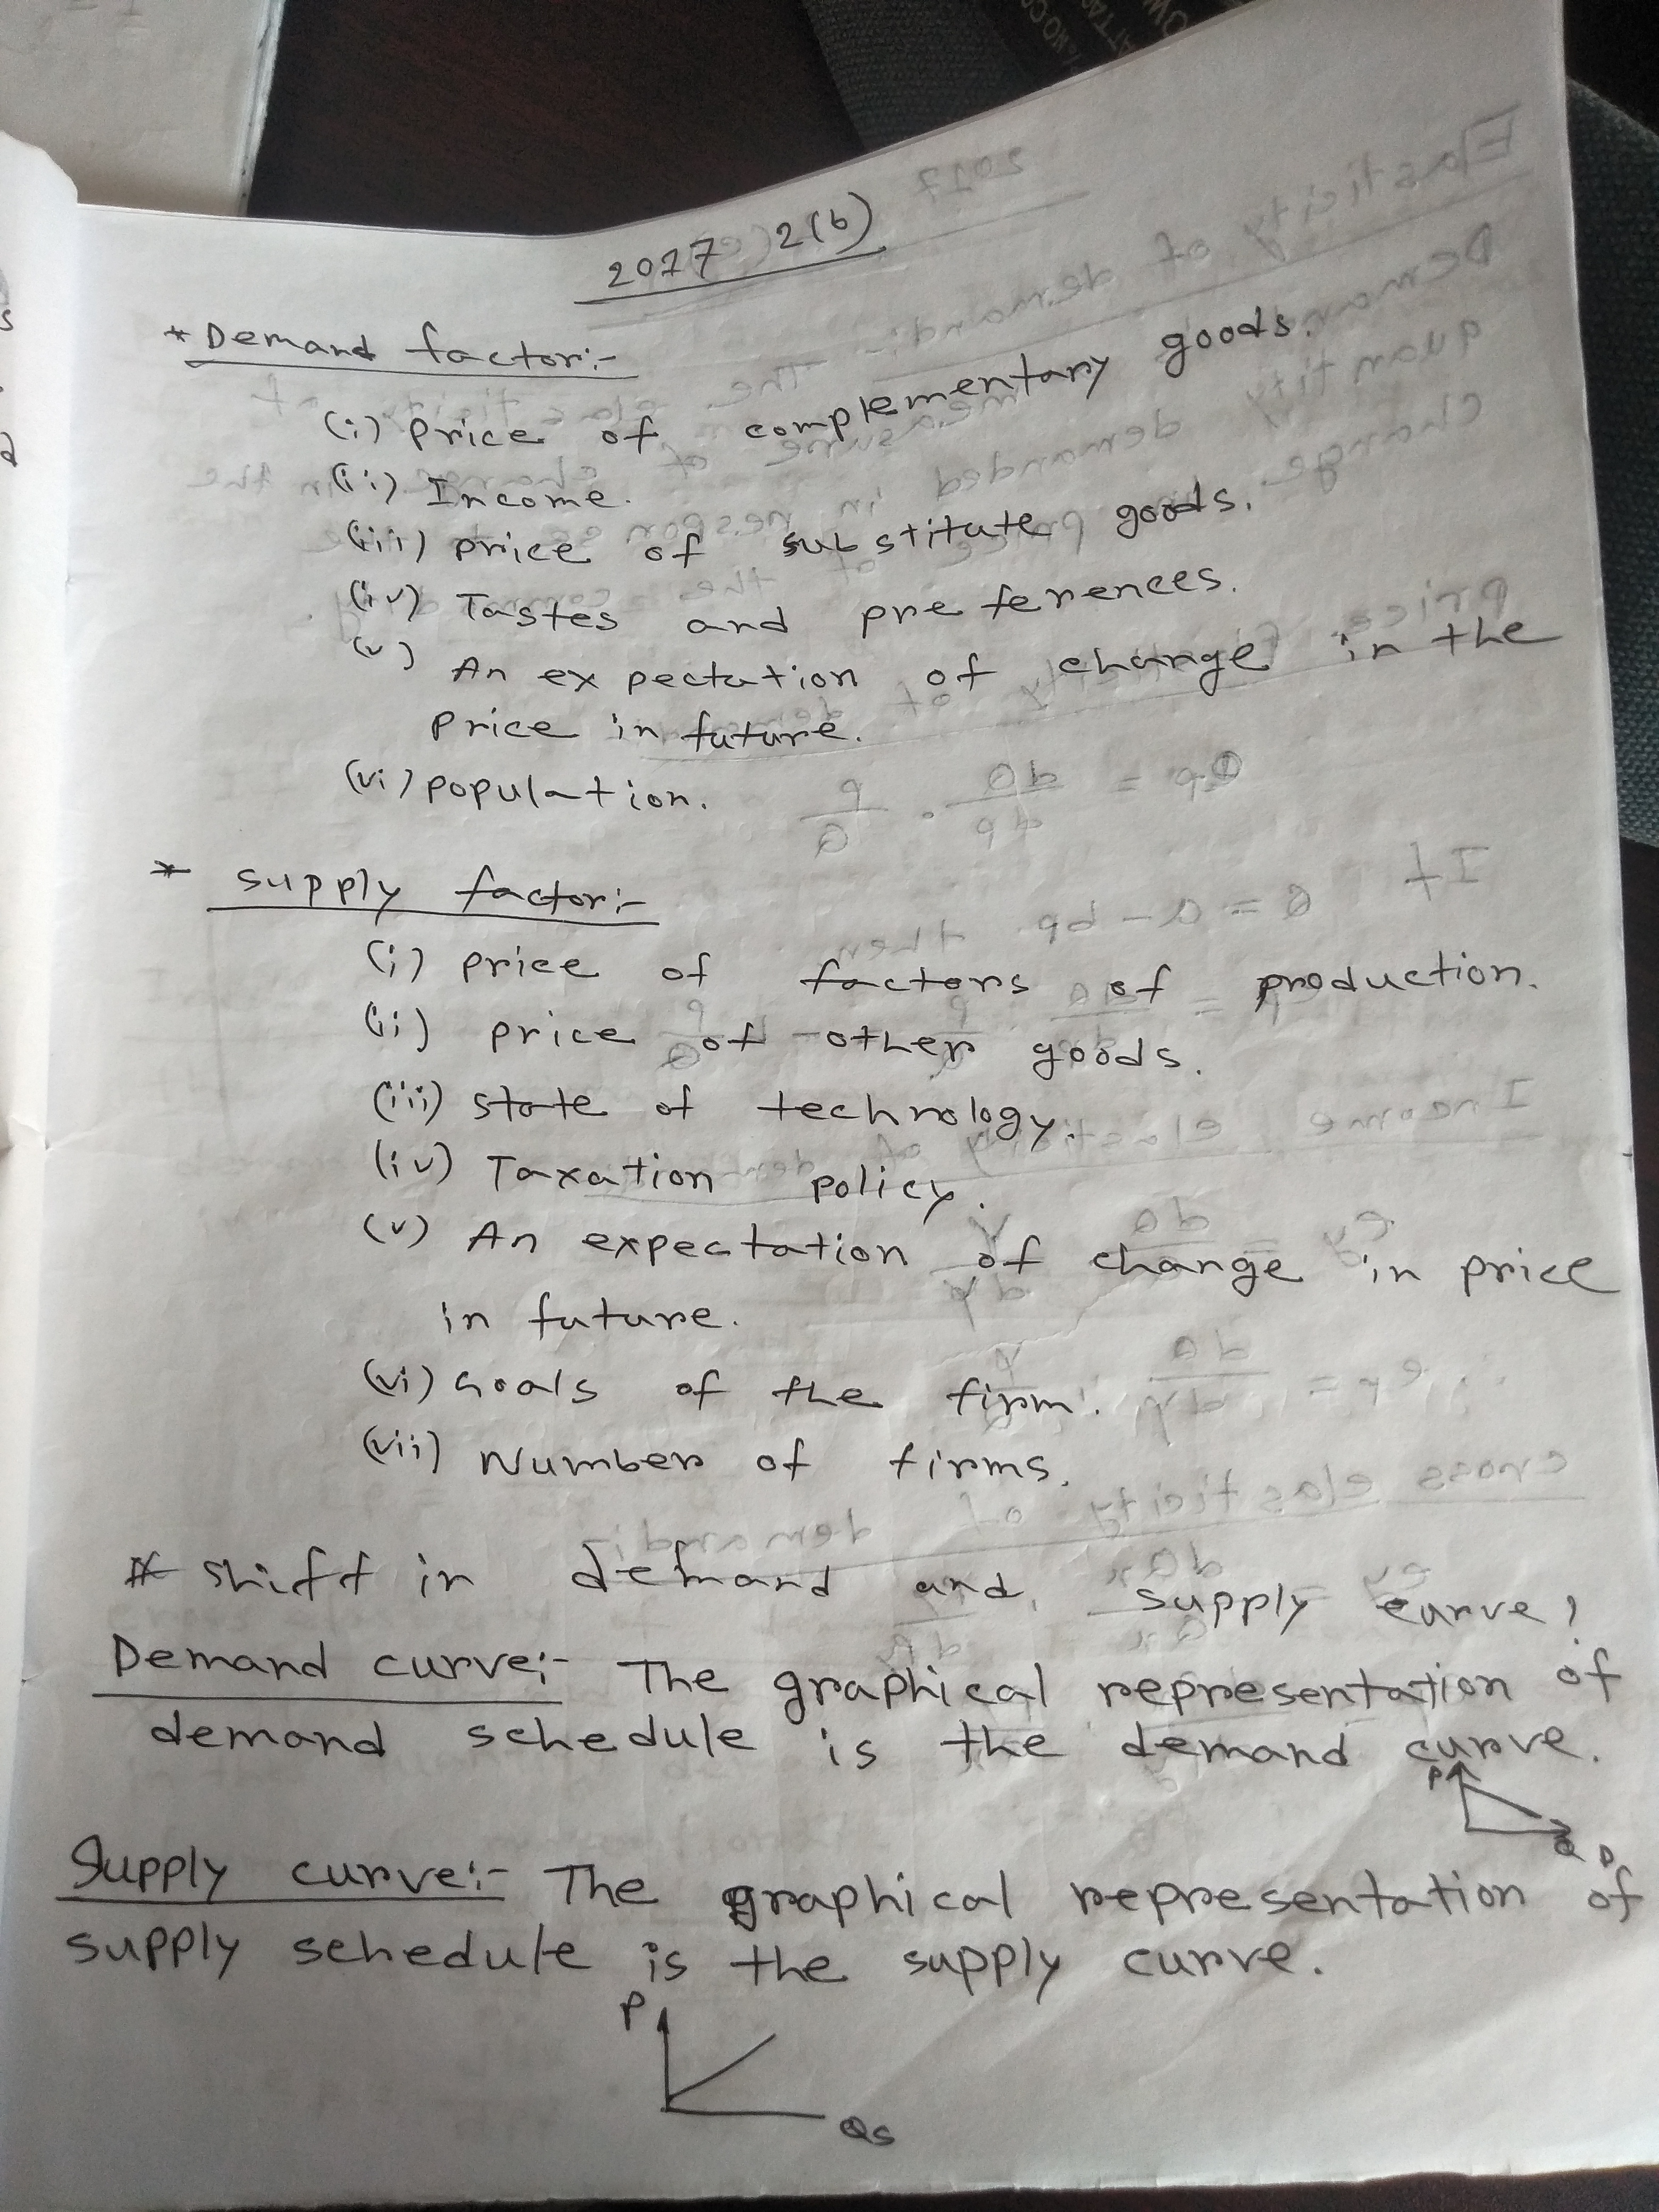 2017 2(b)
* Demand factor:-
(i) Price of complementary goods.
(ii) Income.
(iii) price of substitute goods.
(iv) Tastes and preferences.
(v) An expectation of change in the
Price in future.
(vi) population.
* supply factor:-
(i) price of factors of production.
(ii) price of other goods.
(iii) state of technology.
(iv) Taxation policy.
(v) An expectation of change in price
in future.
(vi) Goals of the firm.
(vii) Number of firms.
# shift in demand and supply curve!
Demand curve:- The graphical representation of
demand schedule is the demand curve.
P
Q D
Supply curve:- The graphical representation of
supply schedule is the supply curve.
P
Qs